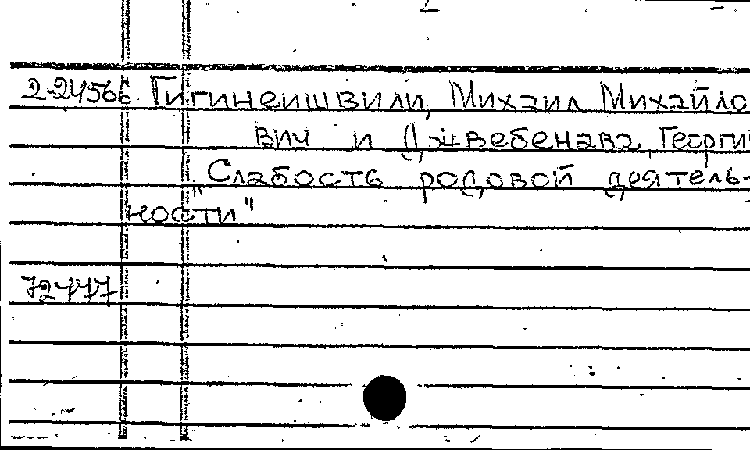 2-24566 Гигинеишвили, Михаил Михайло
вич и Джвебенава, Георги
"Слабость родовой деятель-
ности"
72777